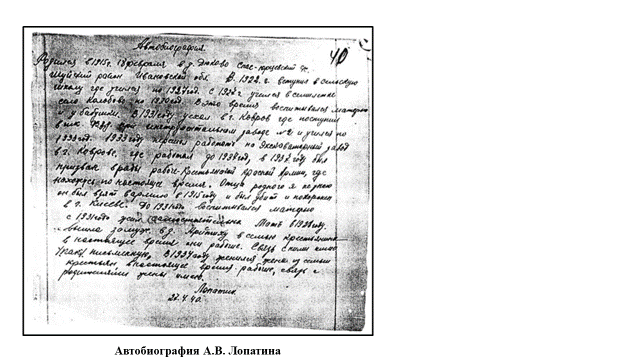 Автобиография
40
Родился в 1915г. 18 февраля в д. Дюково
Шуйский район Ивановской обл. В 1922 г. вступил в сельскую
школу где учился по 1927 год. С 1927 г учился в семилетке
село Колобово по 1930 год. В это время воспитывался матерью
и у бабушки. В 1931 году уехал в г. Ковров где поступил
в школу ФЗУ при заводе №2 и учился по
1933 год. 1933 году перешел работать на Экскаваторный завод
в г. Коврове, где работал до 1937 год, в 1937 году был
призван в ряды рабоче-Крестьянской красной армии, где
нахожусь по настоящее время. Отца родного я не знаю
он был взят в армию в 1915 году и был убит и похоронен
в г. Киеве. До 1931 года воспитывался матерью
с 1931 года жил самостоятельно. Мать в 1928 году
вышла замуж в д. в семью крестьянина
в настоящее время они рабочие. Связь с ними имею
письменную, В 1937 году женился жена из семьи
крестьян в настоящее время рабочие, связь с
родителями жены имею.
Лопатин
22.4.40.
Автобиография А.В. Лопатина